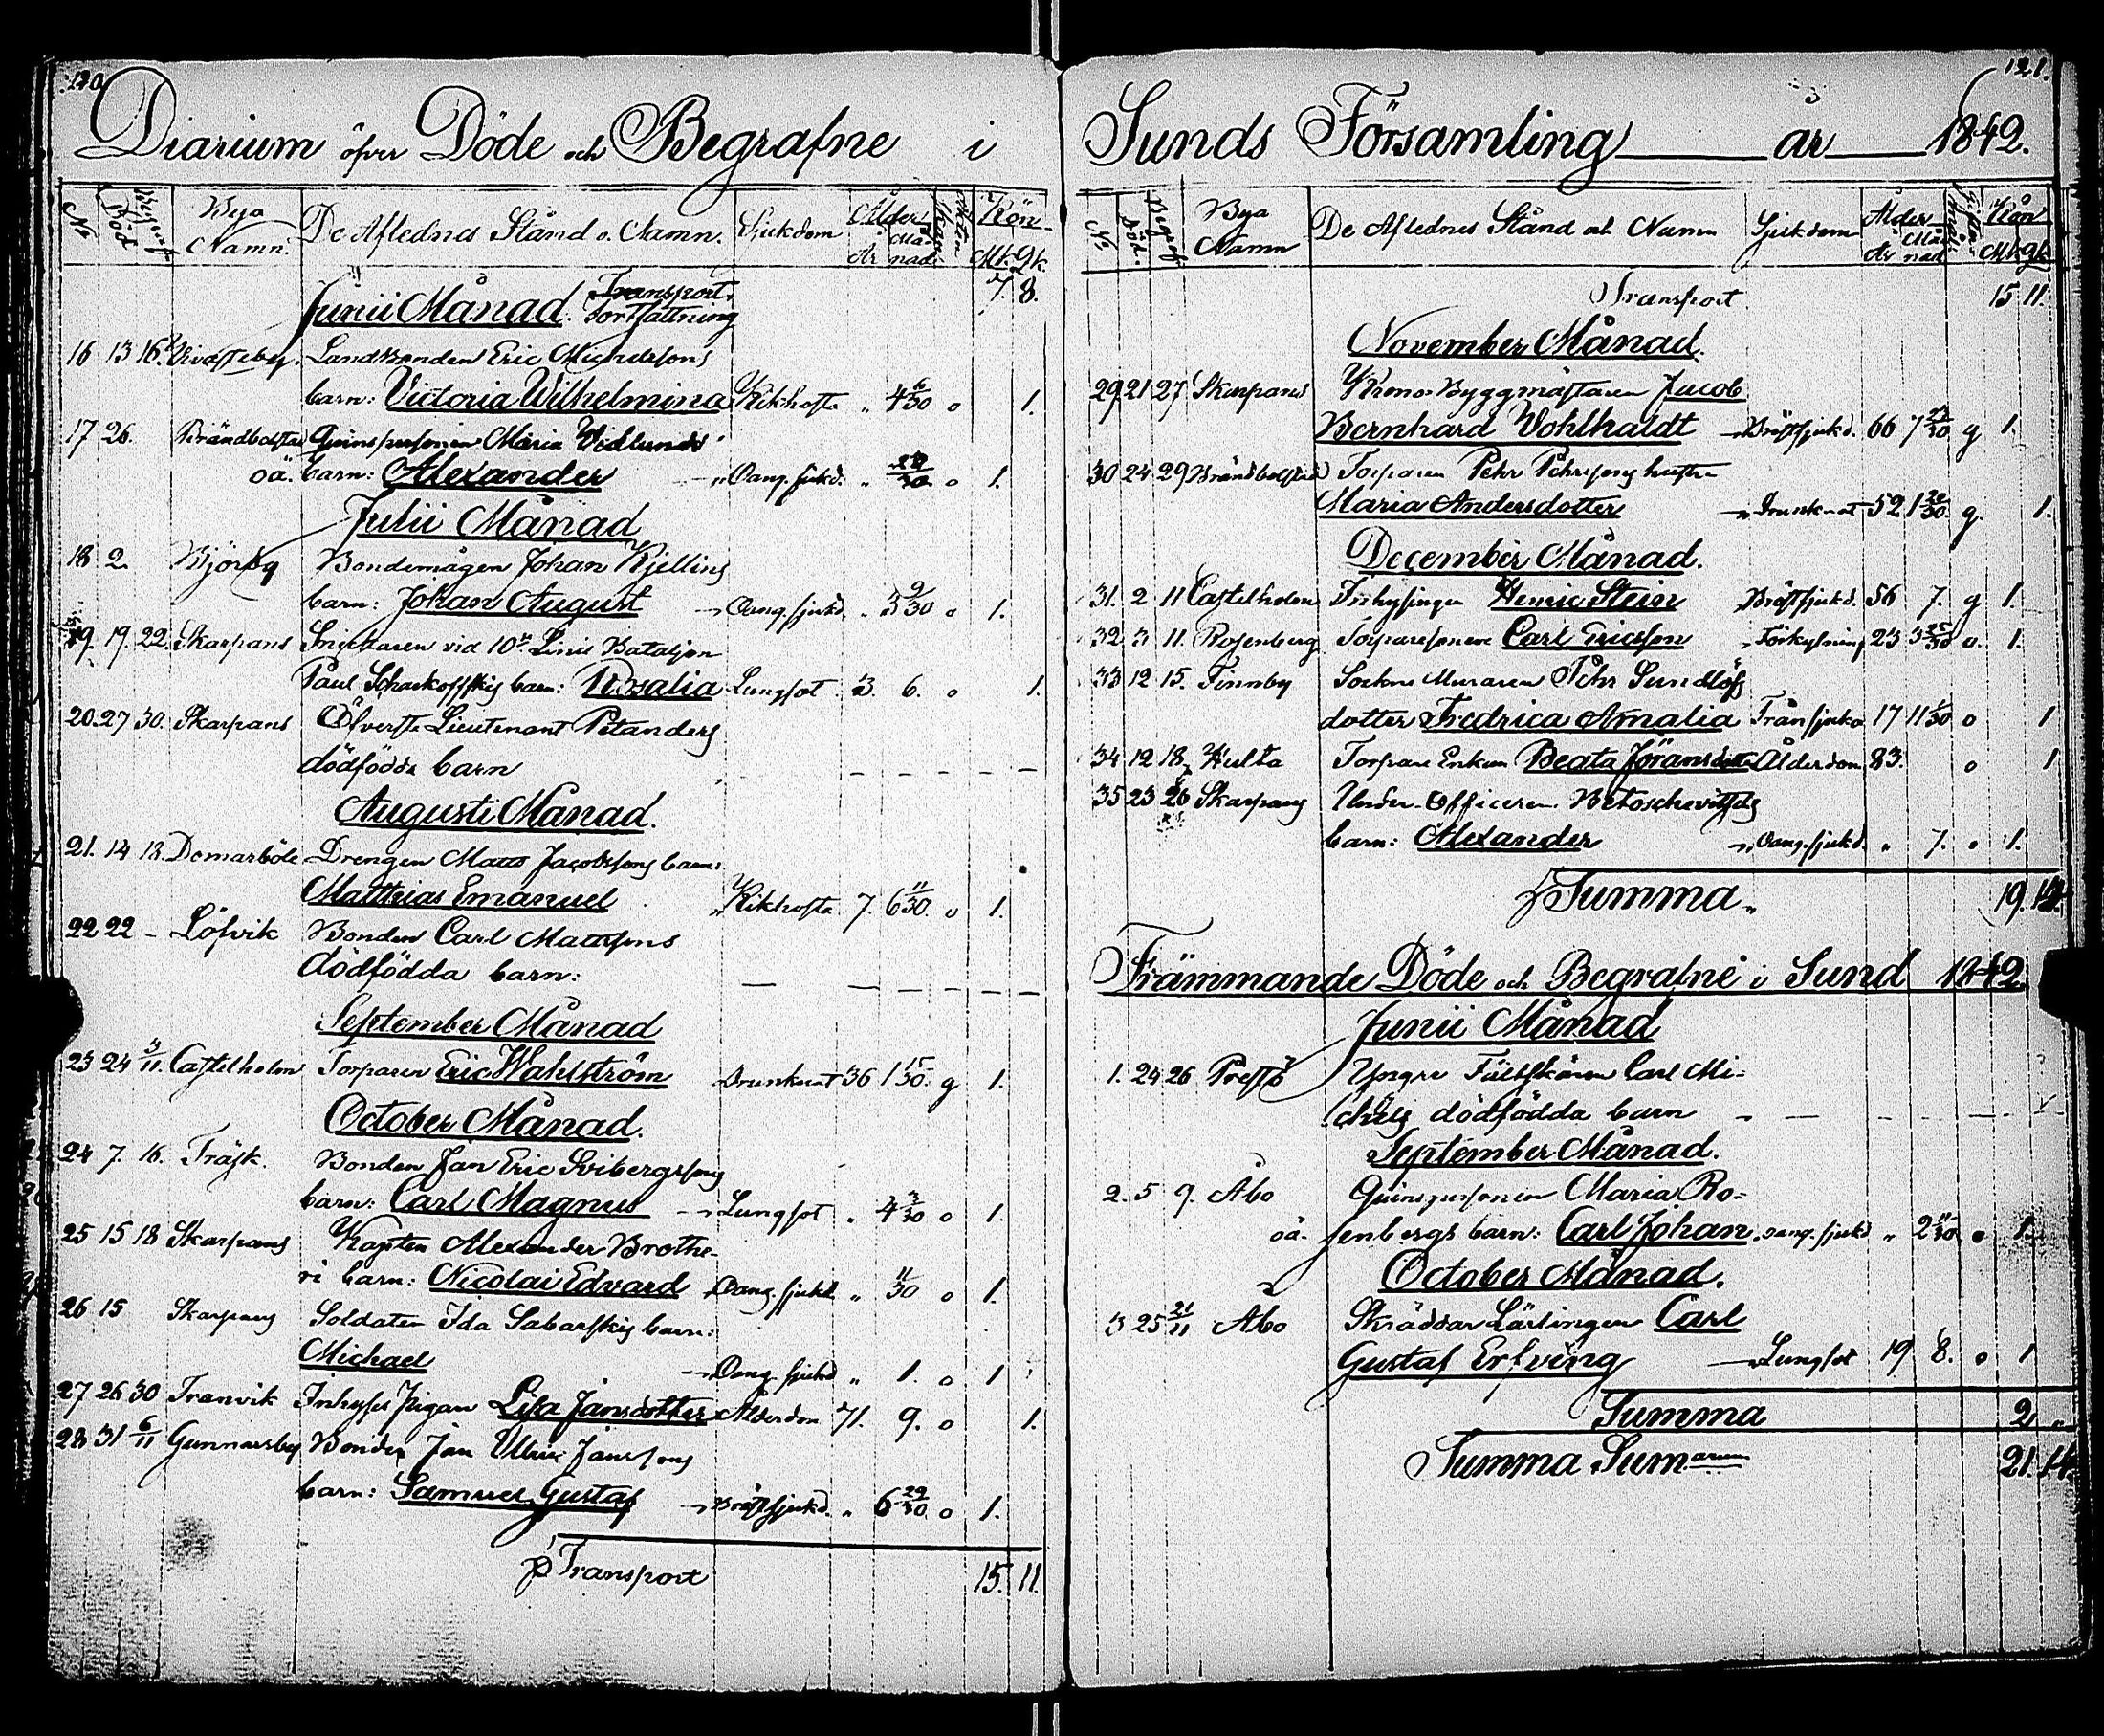 120.
Diarium öfver Döde och Begrafne i
No Död Begraf. Bya Namn. De Aflednes Stånd o. Namn. Sjukdom Ålder År Månad Kön Mk. Qk.
Junii Månad. Transport. 7. 8.
Fortsättning
16 13 16. Landbonden Eric Michelssons
barn: Victoria Wilhelmina Kikhosta „ 4 6/30 o 1.
17 26. Brändbolstad Qvinspersonen Maria Widlunds
oä. barn: Alexander „ Oang. sjukd. „ o 1.
Julii Månad
18 2. Björby Bondemågen Johan Kjellins
barn: Johan August Oang. sjukd. „ 3 9/30 o 1.
19. 19. 22. Skarpans vid 10de Linie Bataljon
Paul Scharkoffskis barn: Rosalia Lungsot 3. 6. o 1.
20. 27 30. Skarpans Öfverste Lieutenant Petanders
dödfödda barn — — — — — —
Augusti Månad.
21. 14 18. Domarböle Drengen Matts Jacobssons barn:
Matthias Emanuel „ Kikhosta. 7. 6 11/30. o 1.
22 22 – Löfvik Bonden Carl Mattssons
dödfödda barn: — — — — — —
September Månad
23 24 3/11. Castelholm Torparen Eric Wahlström Drunknat 36 1 15/30. g 1.
October Månad.
24 7. 16. Träsk. Bonden Jan Eric Svibergssons
barn: Carl Magnus „ Lungsot „ 4 3/30 o 1.
25 15 18 Skarpans Kapten Alexander Brothe-
ri barn: Nicolai Edvard Oang. sjukd. „ 11/30 o 1.
26 15 Skarpans Soldaten Ida Sabarskis barn:
Michael „ Oang. sjukd. „ 1. o 1
27 26 30 Tranvik Inhyses Pigan Lisa Jansdotter Ålderdom 71. 9. o 1.
28 31 6/11 Gunnarsby Bonden Jan Ulric Janssons
barn: Samuel Gustaf „ Bröstsjukd. „ 6 29/30. o 1.
Transport 15. 11.
121.
Sunds Församling år 1842.
No Död. Begraf. Bya Namn De Aflednes Stånd och Namn Sjukdom Ålder År Månad Kön Mk. Qk
Transport 15 11.
November Månad.
29 21 27 Skarpans Krono Byggmästaren Jacob
Bernhard Wohlhaldt Bröstsjukd. 66 7 g 1.
30 24 29 Brändbolstad Torparen Pehr Pehrsons hustru
Maria Andersdotter „ Drunknat 52 1 20/30. g. 1.
December Månad.
31. 2 11 Castelholm Inhysingen Henric Stein „ Bröstsjukd. 56 7. g 1.
32. 3 11. Rosenberg Torparesonen Carl Ericsson „ Förkylning 23 3 25/30 o. 1.
33 12 15. Finnby Sockne Muraren Pehr Sundlöfs
dotter Fredrica Amalia Trånsjuka 17 11 1/30 o 1
34 19 18. Hulta Torpare Enkan Beata Jöransdotter Ålderdom 83. o 1
35 23 26 Skarpans Under Officeren
barn: Alexander „ Oang. sjukd. „ 7. o 1.
Summa „ 19. 14.
Främmande Döde och Begrafne i Sund 1842.
Junii Månad
1. 24 26 Prestö Yngre Fältskären Carl Mi-
chels dödfödda barn — — — — —
September Månad.
2. 5 9. Åbo Qvinspersonen Maria Ro-
oä. senbergs barn: Carl Johan „ oang. sjukd „ 2 11/30. o 1.
October Månad.
3 25 21/11 Åbo Skräddar Lärlingen Carl
Gustaf Erfving „ Lungsot 19 8. o 1
Summa 2 „
Summa Summarum 21. 14.